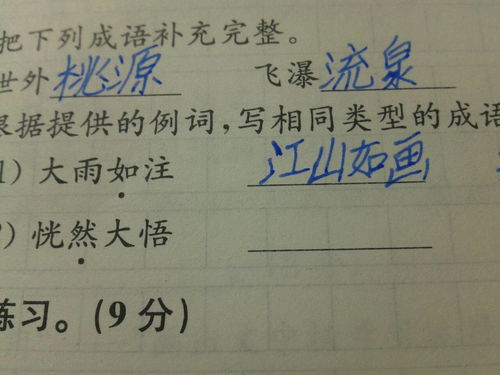 把下列成语补充完整。
世外桃源 飞瀑流泉
根据提供的例词,写相同类型的成语
1)大雨如注 江山如画
)恍然大悟
练习。(9分)